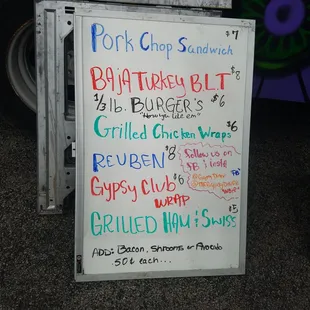 Pork Chop Sandwich $7
Baja Turkey BLT $8
1/3 lb. BURGER'S $6
Grilled Chicken Wraps $6
REUBEN $8
follow us on
FB & insta
Gypsy Club $6
WRAP
GRILLED HAM & SWISS $5
ADD: Bacon, Shrooms or Avocado
50¢ each...